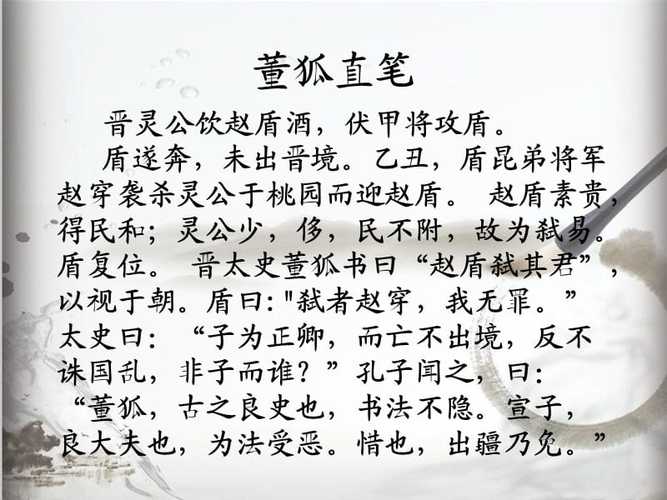 董狐直笔
晋灵公饮赵盾酒，伏甲将攻盾。
盾遂奔，未出晋境。乙丑，盾昆弟将军
赵穿袭杀灵公于桃园而迎赵盾。 赵盾素贵，
得民和；灵公少，侈，民不附，故为弑易。
盾复位。 晋太史董狐书曰“赵盾弑其君”，
以视于朝。盾曰："弑者赵穿，我无罪。”
太史曰：“子为正卿，而亡不出境，反不
诛国乱，非子而谁？”孔子闻之，曰：
“董狐，古之良史也，书法不隐。宣子，
良大夫也，为法受恶。惜也，出疆乃免。”